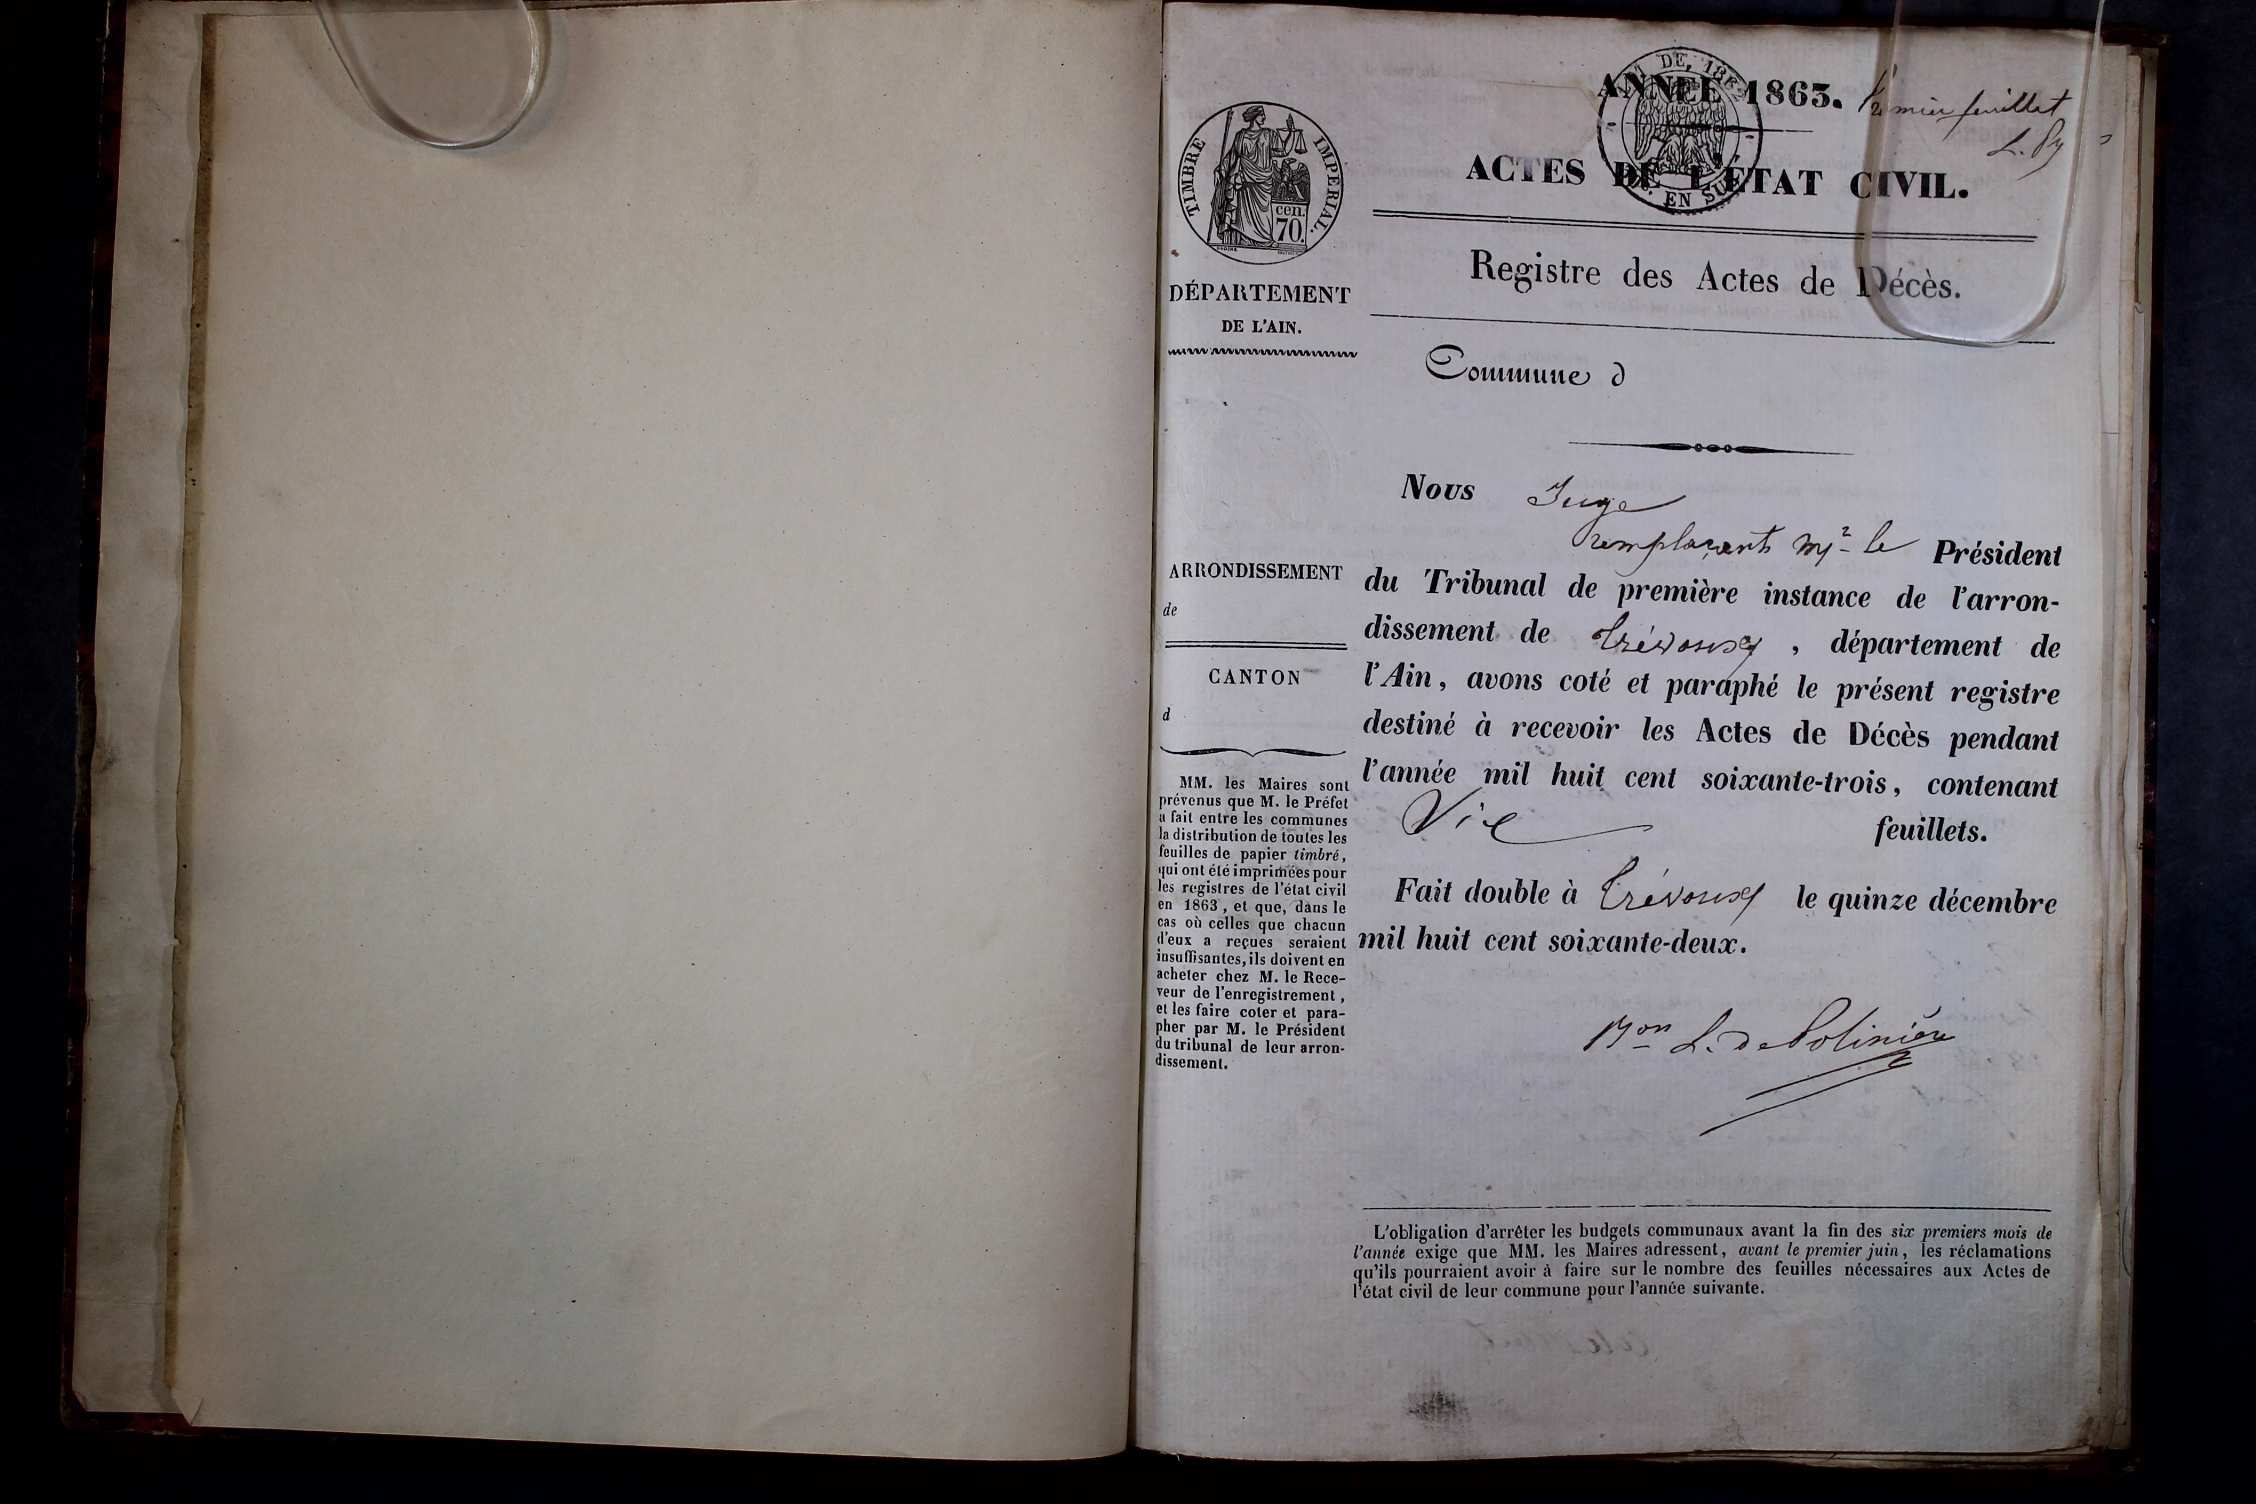 ANNÉE 1863. Premier feuillet
TIMBRE IMPERIAL.
cen. 70.
EN SUS
ACTES DE L'ÉTAT CIVIL.
Registre des Actes de Décès.
DÉPARTEMENT
DE L'AIN.
Commune d
ARRONDISSEMENT
de
CANTON
d
MM. les Maires sont
prévenus que M. le Préfet
a fait entre les communes
la distribution de toutes les
feuilles de papier timbré,
qui ont été imprimées pour
les registres de l'état civil
en 1863, et que, dans le
cas où celles que chacun
d'eux a reçues seraient
insuffisantes, ils doivent en
acheter chez M. le Rece-
veur de l'enregistrement,
et les faire coter et para-
pher par M. le Président
du tribunal de leur arron-
dissement.
Nous Juge
remplaçant Mr le Président
du Tribunal de première instance de l'arron-
dissement de Trévoux, département de
l'Ain, avons coté et paraphé le présent registre
destiné à recevoir les Actes de Décès pendant
l'année mil huit cent soixante-trois, contenant
feuillets.
Fait double à Trévoux le quinze décembre
mil huit cent soixante-deux.
Bon L. de Polinière
L'obligation d'arrêter les budgets communaux avant la fin des six premiers mois de
l'année exige que MM. les Maires adressent, avant le premier juin, les réclamations
qu'ils pourraient avoir à faire sur le nombre des feuilles nécessaires aux Actes de
l'état civil de leur commune pour l'année suivante.